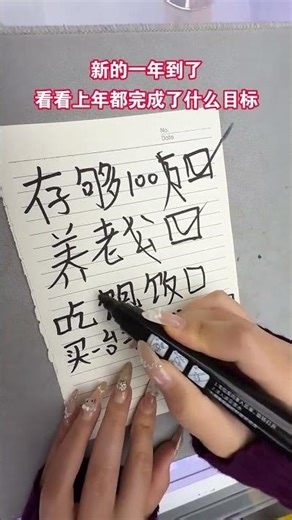 新的一年到了
看看上年都完成了什么目标
No.
Date
存够100
养老公
吃饱饭
买一台